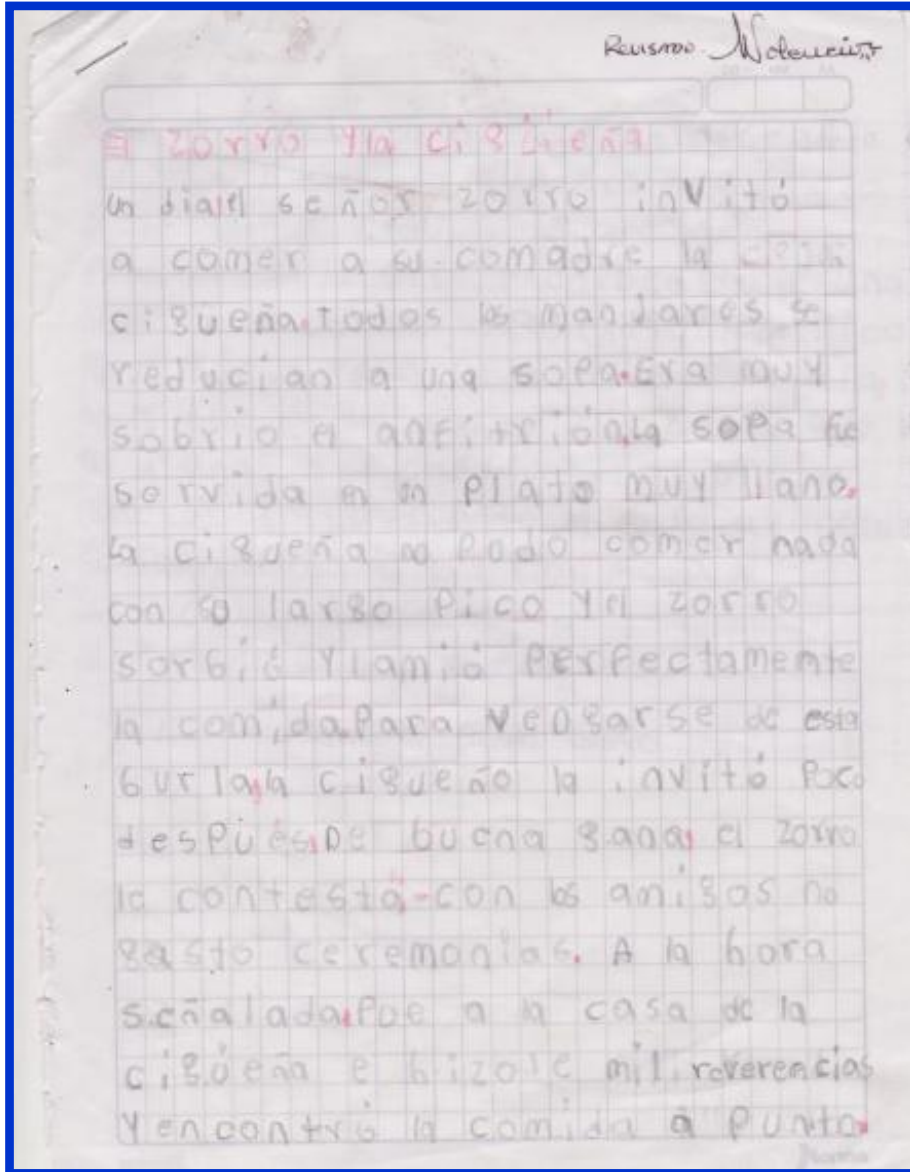 Revisado
El zorro y la cigüeña
un dia el señor zorro invitó
a comer a su comadre la
cigueña. Todos los manjares se
reducian a una sopa. Era muy
sobrio el anfitrión, la sopa fue
servida en un plato muy llano.
La cigueña no pudo comer nada
con su largo pico y el zorro
sorbió y lamió perfectamente
la comida. Para vengarse de esta
burla, la cigueña lo invitó poco
despúes. De buena gana, el zorro
le contestó - con los amigos no
gasto ceremonias. A la hora
señalada, fue a la casa de la
cigüeña e hizole mil reverencias
y encontró la comida a punto.
Norma